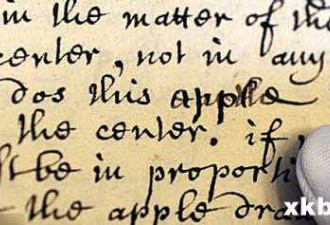 in the matter of the
center, not in any
dos this apple
the center. if
be in proporti
the apple dra
xkb